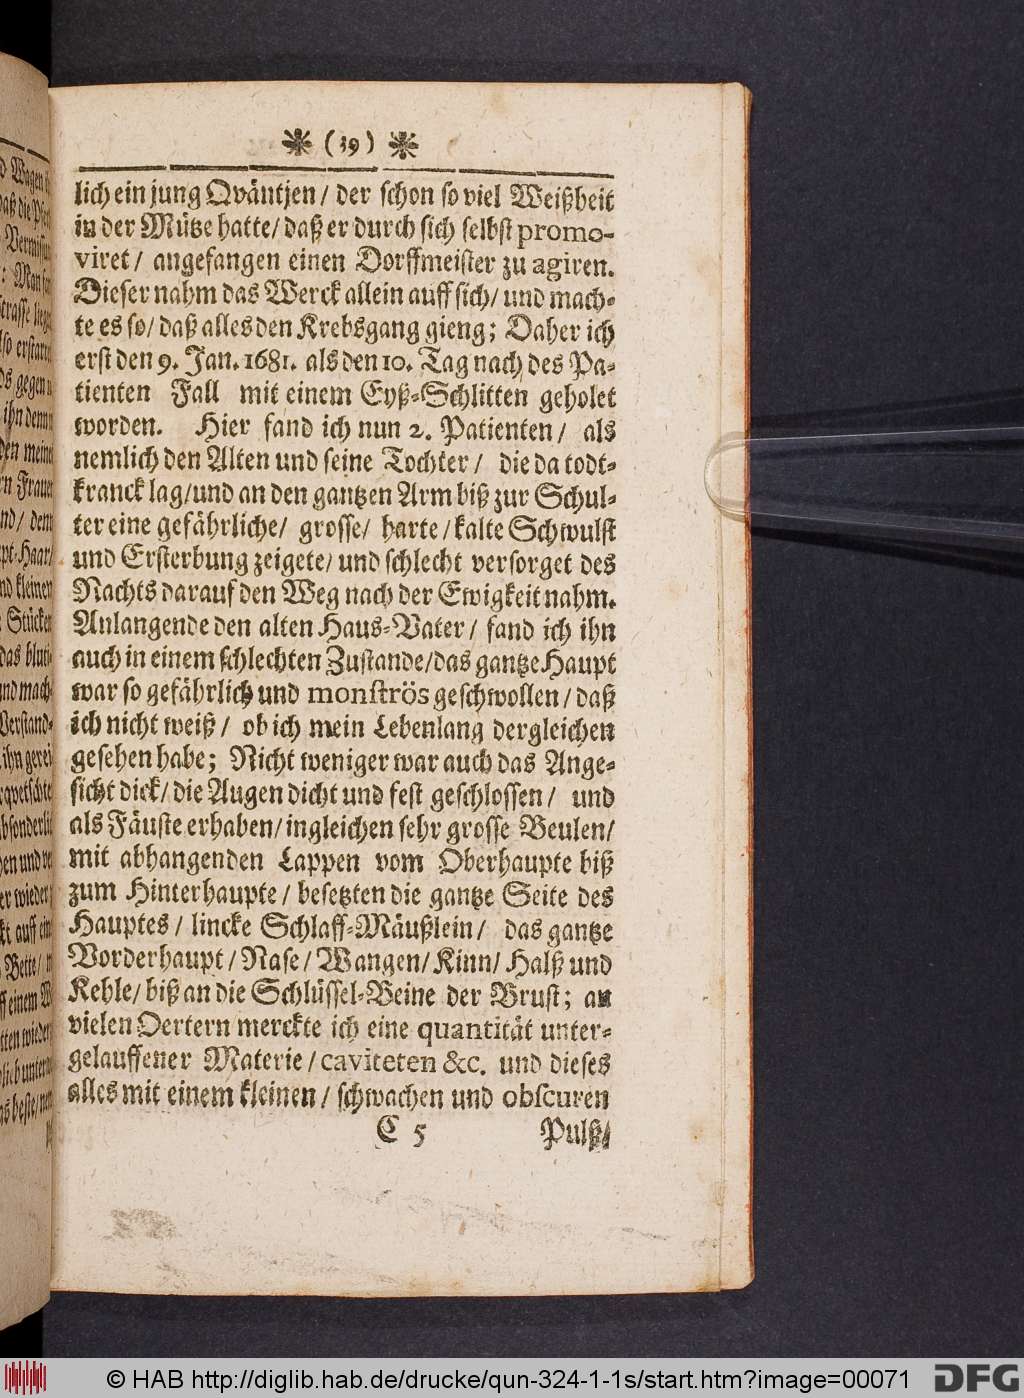 (39)
lich ein jung Qväntjen / der schon so viel Weißheit
in der Mütze hatte / daß er durch sich selbst promo-
viret / angefangen einen Dorffmeister zu agiren.
Dieser nahm das Werck allein auff sich / und mach-
te es so / daß alles den Krebsgang gieng; Daher ich
erst den 9. Jan. 1681. als den 10. Tag nach des Pa-
tienten Fall mit einem Eyß-Schlitten geholet
worden. Hier fand ich nun 2. Patienten / als
nemlich den Alten und seine Tochter / die da todt-
kranck lag / und an den gantzen Arm biß zur Schul-
ter eine gefährliche / grosse / harte / kalte Schwulst
und Ersterbung zeigete / und schlecht versorget des
Nachts darauf den Weg nach der Ewigkeit nahm.
Anlangende den alten Haus-Vater / fand ich ihn
auch in einem schlechten Zustande / das gantze Haupt
war so gefährlich und monströs geschwollen / daß
ich nicht weiß / ob ich mein Lebenlang dergleichen
gesehen habe; Nicht weniger war auch das Ange-
sicht dick / die Augen dicht und fest geschlossen / und
als Fäuste erhaben / ingleichen sehr grosse Beulen /
mit abhangenden Lappen vom Oberhaupte biß
zum Hinterhaupte / besetzten die gantze Seite des
Hauptes / lincke Schlaff-Mäußlein / das gantze
Vorderhaupt / Nase / Wangen / Kinn / Halß und
Kehle / biß an die Schlüssel-Beine der Brust; an
vielen Oertern merckte ich eine quantität unter-
gelauffener Materie / caviteten &c. und dieses
alles mit einem kleinen / schwachen und obscuren
C 5 Pulß /
© HAB http://diglib.hab.de/drucke/qun-324-1-1s/start.htm?image=00071
DFG